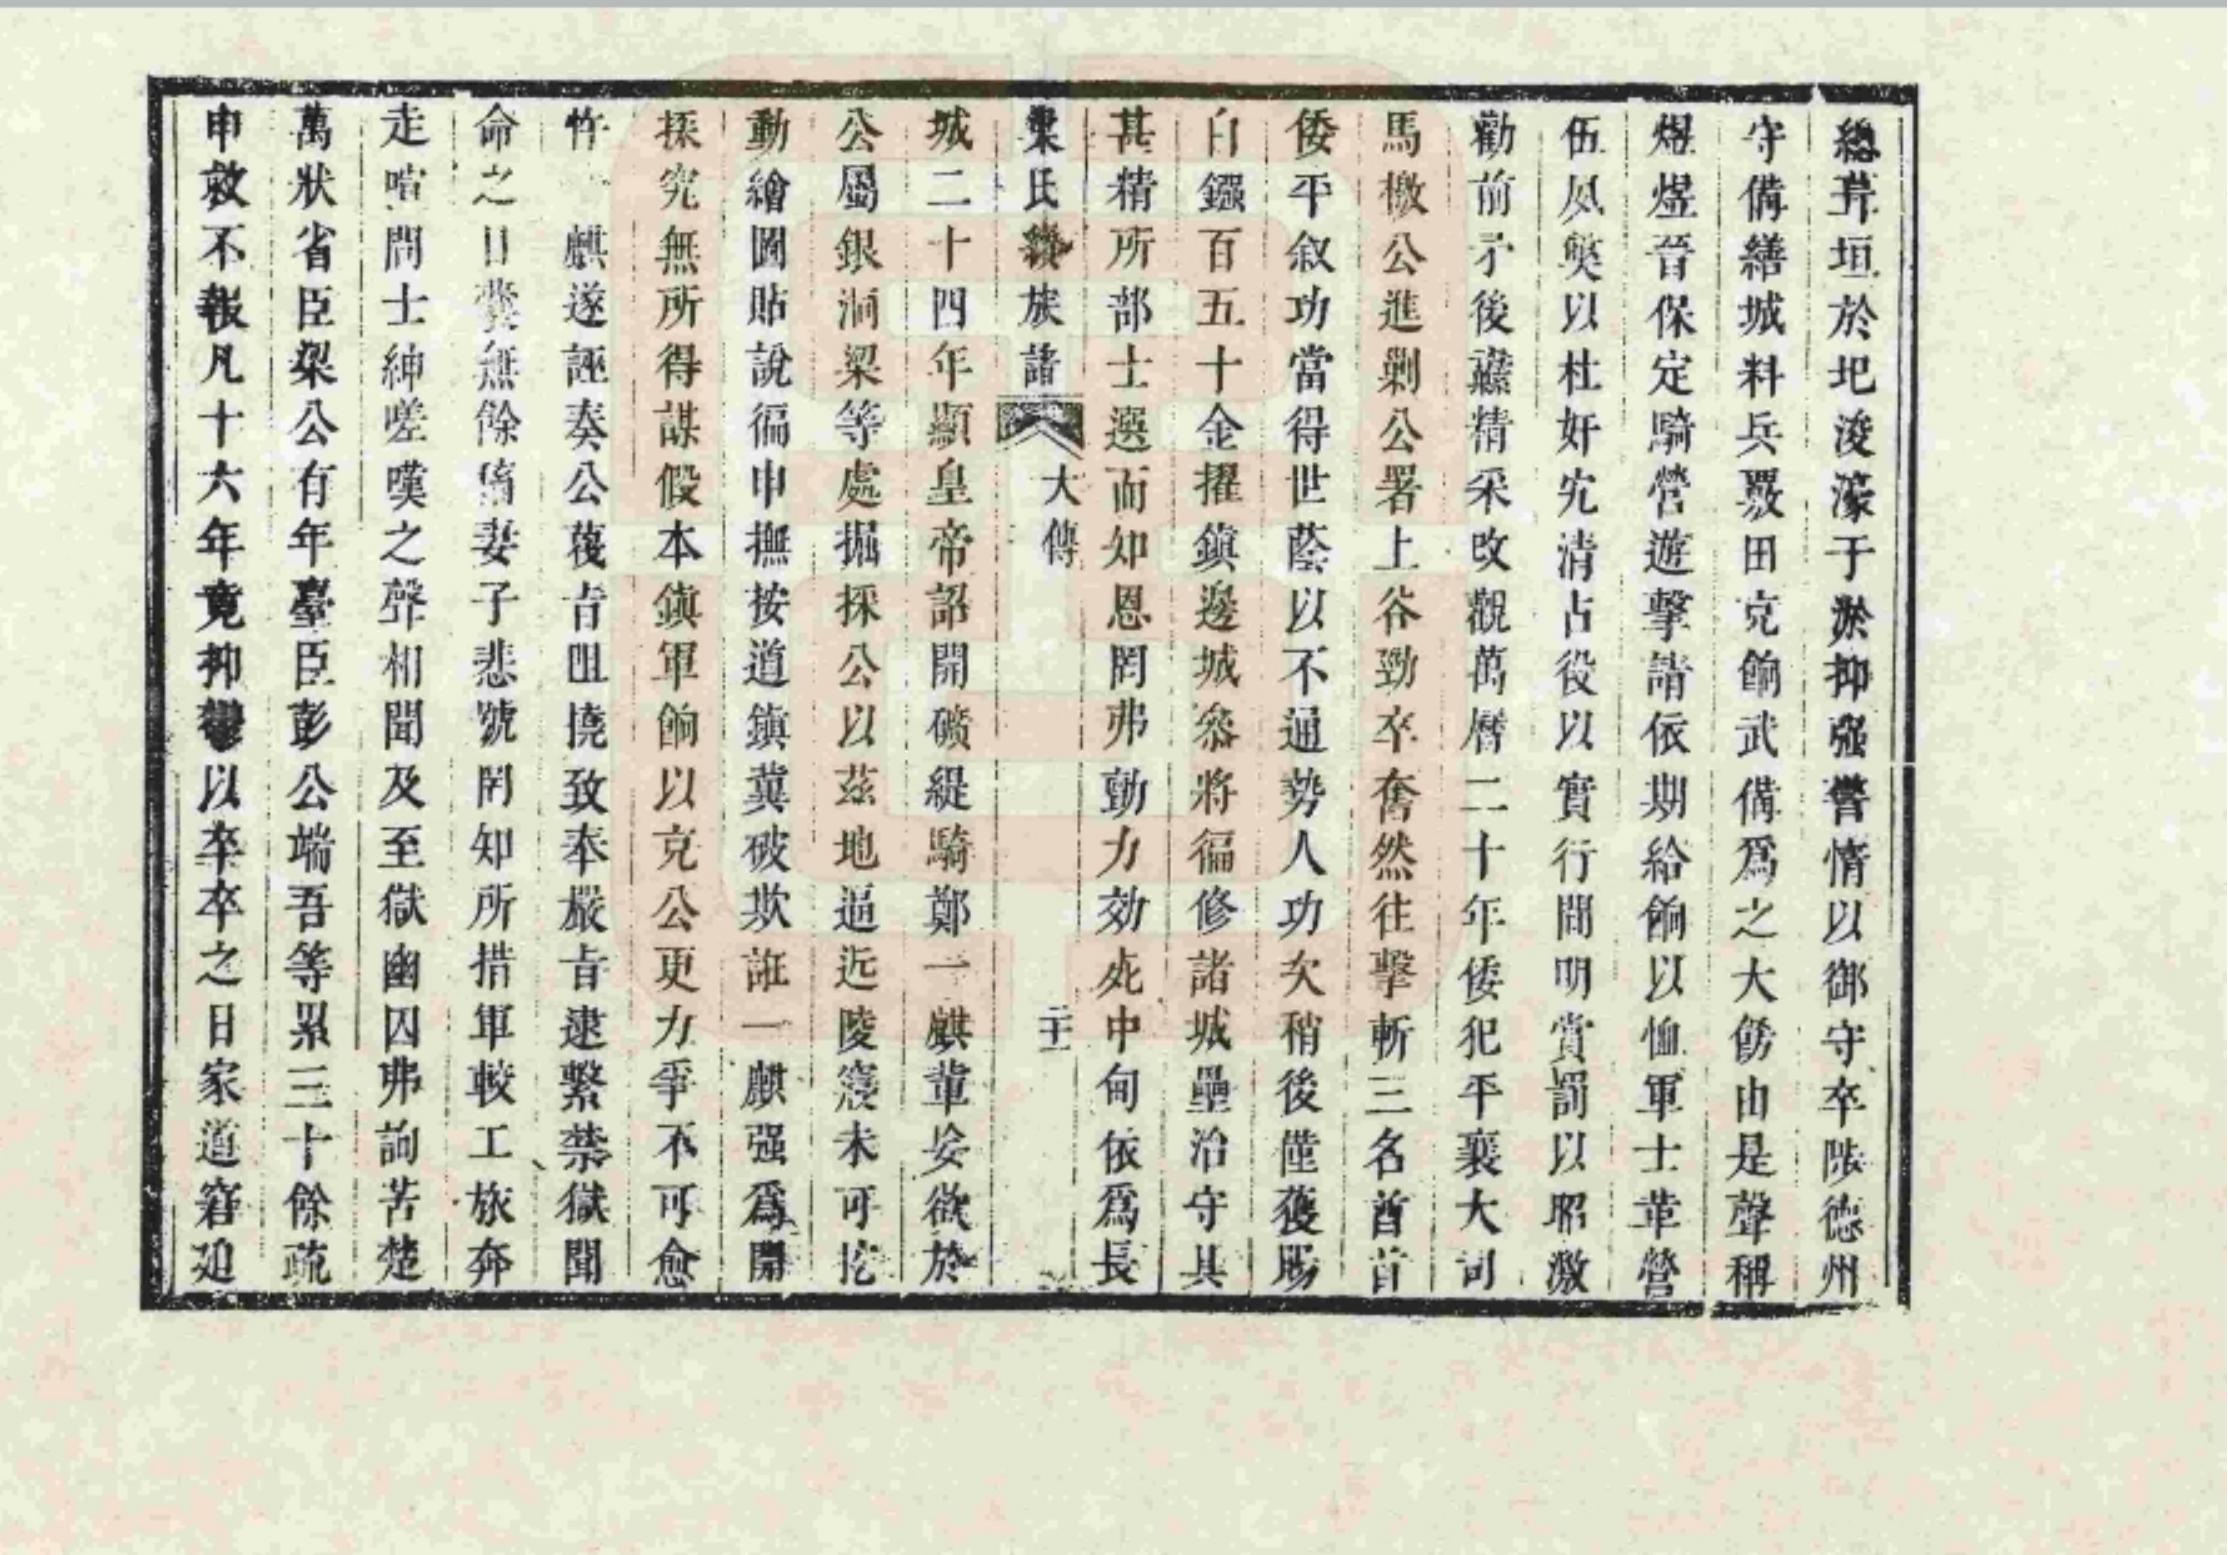 總葺垣於圯浚濠于淤抑强警惰以御守卒陟德州
守備繕城料兵覈田克餉武備爲之大飭由是聲稱
煜煜晉保定騎營遊擊請依期給餉以恤軍士革營
伍夙獘以杜奸宄清占役以實行間明賞罰以昭激
勸前矛後纛精采改觀萬曆二十年倭犯平襄大司
馬檄公進剿公署上谷勁卒奮然往擊斬三名酋首
倭平叙功當得世蔭以不通勢人功久稍後僅獲賜
白鏹百五十金擢鎮邊城叅將徧修諸城壘治守具
甚精所部士選而如恩罔弗勤力効死中甸依爲長
氏 族譜 大傳
城二十四年顯皇帝詔開礦緹騎鄭一麒輩妄欲於
公屬銀洞梁等處掘採公以茲地逼近陵寢未可挖
動繪圖貼說徧申撫按道鎮冀破欺誑一麒强爲開
採究無所得謀假本鎮軍餉以克公更力爭不可愈
忤 麒遂誣奏公蔑㫖阻撓致奉嚴㫖逮繫禁獄聞
命之日囊無餘 妻子悲號罔知所措軍較工旅奔
走喧閧士紳嗟嘆之聲相聞及至獄幽囚弗詢苦楚
萬狀省臣梁公有年臺臣彭公端吾等累三十餘疏
申救不報凡十六年竟抑鬱以卒卒之日家道窘迫